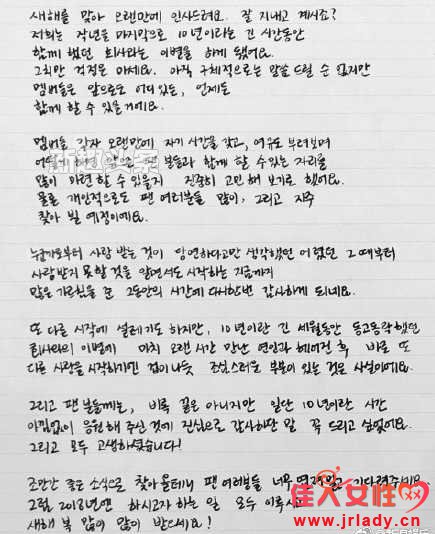 새해를 맞아 오랜만에 인사드려요. 잘 지내고 계시죠?
저희는 작년을 마지막으로 10년이라는 긴 시간동안
함께 했던 회사와는 이별을 하게 됐어요.
그치만 걱정은 마세요. 아직 구체적으로는 말씀 드릴 순 없지만
멤버들은 앞으로도 어디 있든, 언제든
함께 할 수 있을거에요.
멤버들 각자 오랜만에 자기 시간을 갖고, 여유도 부려보며
분들과 함께 할 수 있는 자리를
많이 마련할 수 있을지 진중히 고민해 보기로 했어요.
물론 개인적으로도 팬 여러분들 많이, 그리고 자주
찾아 뵐 예정이에요.
누군가로부터 사랑 받는 것이 당연하다고만 생각했던 어렸던 그 때부터
사랑받지 못할 것을 알면서도 시작하는 지금까지
많은 가르침을 준 그동안의 시간에 다시한번 감사하게 되네요.
또 다른 시작에 설레기도 하지만, 10년이란 긴 세월동안 동고동락했던
회사와의 이별에 마치 오랜 시간 만난 연인과 헤어진 후 바로 또
다른 사랑을 시작하기엔 겁이 나듯 조심스러운 부분이 있는 것은 사실이에요.
그리고 팬 분들께는, 비록 끝은 아니지만 일단 10년이란 시간
아낌없이 응원해 주신 것에 진심으로 감사하단 말 꼭 드리고 싶었어요.
그리고 모두 고생하셨습니다!
조만간 좋은 소식으로 찾아올테니 팬 여러분들 너무 기다려주세요.
그럼 2018년엔 하시고자 하는 일 모두 이루시고
새해 복 많이 많이 받으세요!
佳人女性网
www.jrlady.cn